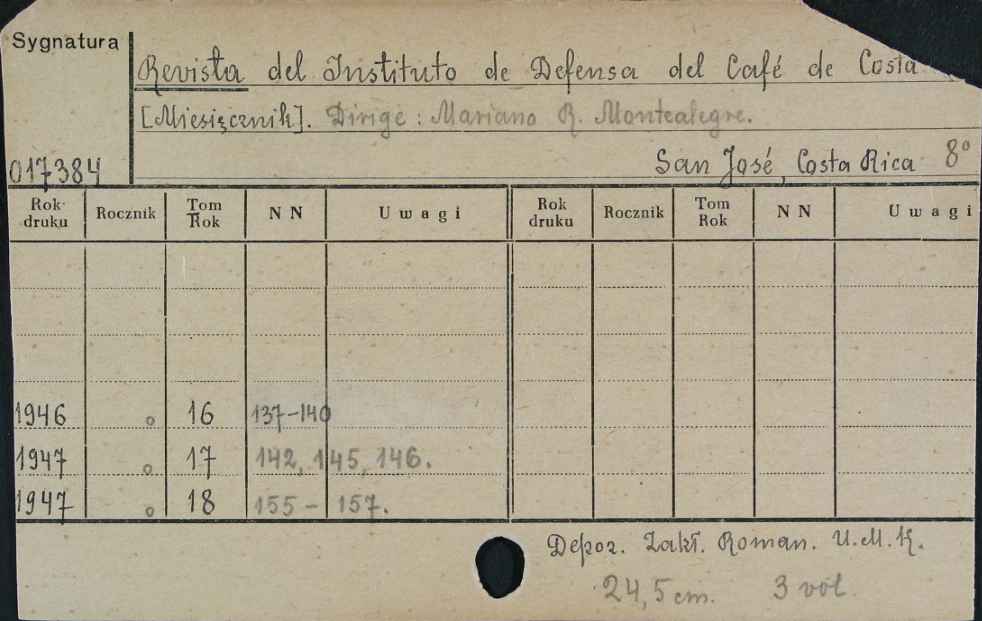 Sygnatura
Revista del Instituto de Defensa del Café de Costa
[Miesięcznik]. Dirige: Mariano R. Montealegre.
San José, Costa Rica 8°
017384
Rok druku Rocznik Tom Rok NN Uwagi Rok druku Rocznik Tom Rok NN Uwagi
1946 o 16 137-140
1947 o 17 142, 145, 146.
1947 o 18 155 - 157.
Depoz. Zakł. Roman. U.M.K.
24,5 cm. 3 vol.